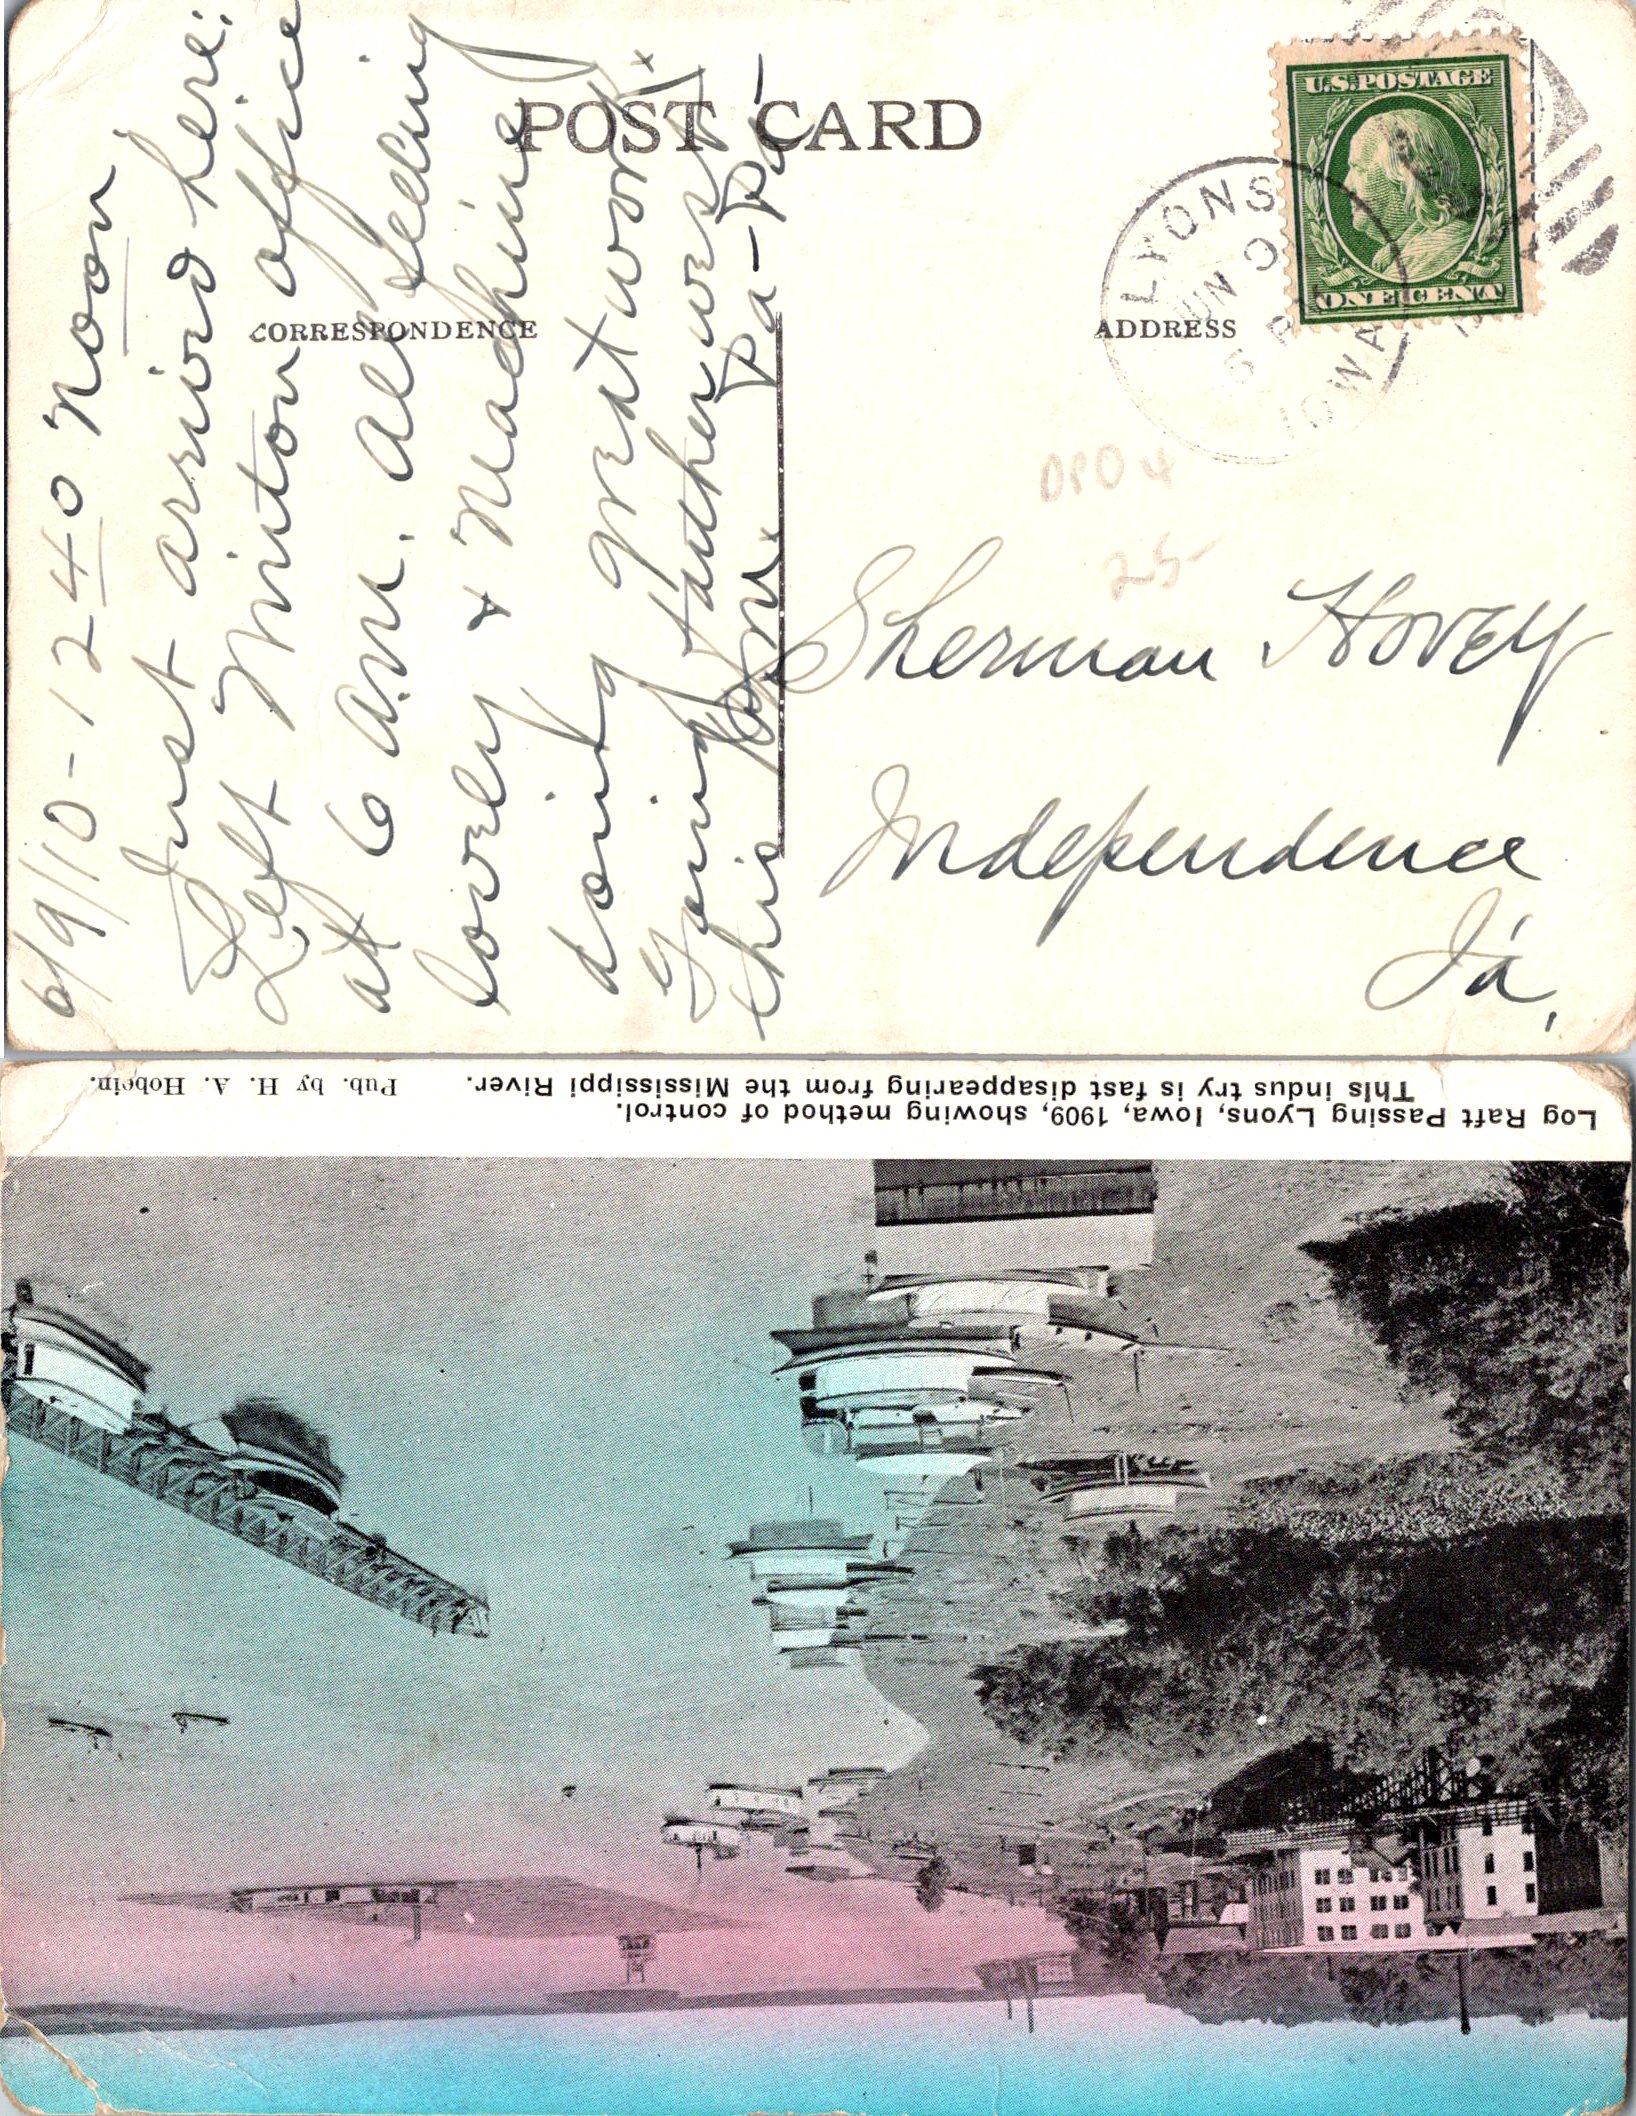 POST CARD
CORRESPONDENCE
ADDRESS
U.S. POSTAGE
ONE CENT
LYONS
JUN 9
5 P
IOWA
6/9/10 - 12 40 Noon
Just arrived here:
Left Minton office
at 6 am. All feeling
lovely & Machine
doing Great work.
Going further west
this P.M.
Pa-Pa-
DPO 4
25-
Sherman Hovey
Independence
Ia,
Log Raft Passing Lyons, Iowa, 1909, showing method of control.
This indus try is fast disappearing from the Mississippi River.
Pub. by H. A. Hobein.